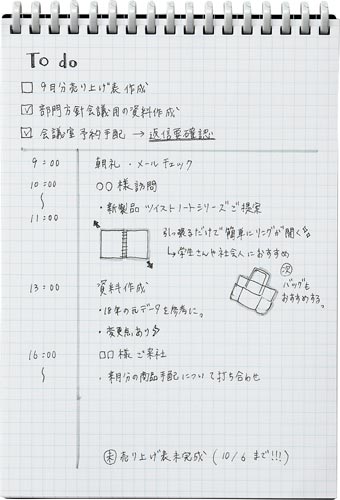 To do
□ 9月分売り上げ表 作成
☑ 部門方針会議用の資料作成
☑ 会議室予約手配 → 返信要確認
9:00 朝礼・メールチェック
10:00 〇〇様訪問
〜 ・新製品 ツイストノートシリーズご提案
11:00 引っ張るだけで簡単にリングが開く
↳学生さんや社会人におすすめ
次 バッグも
おすすめする。
13:00 資料作成
・18年の元データを参考に。
・変更点あり
16:00 □□様ご来社
〜 ・来月分の商品手配について打ち合わせ
未 売り上げ表未完成 (10/6まで!!!)